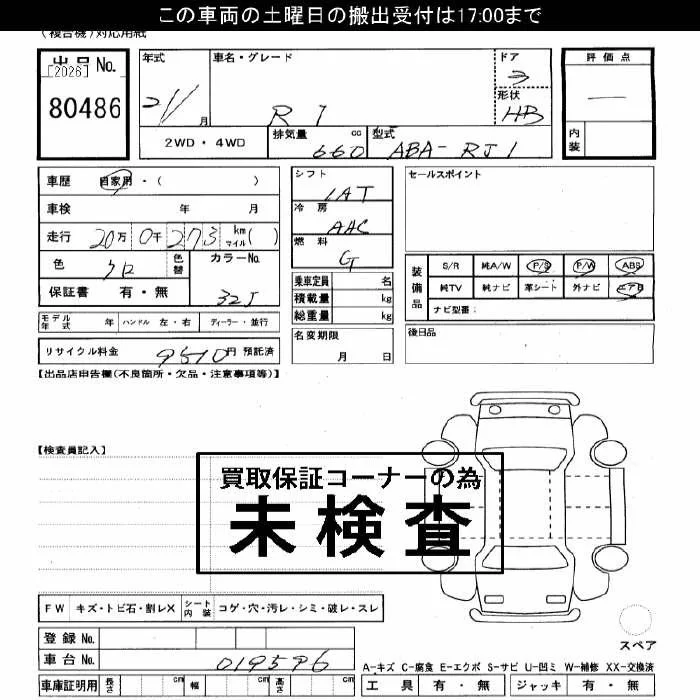 この車両の土曜日の搬出受付は17:00まで
(複合機)対応用紙
出品No.
[2026]
80486
年式
21/
月
車名・グレード
R 1
ドア
3
形状
HB
評価点
—
内装
2WD・4WD
排気量 cc
660
型式
ABA-RJ1
車歴 自家用・( )
車検 年 月
走行 20万 0千 273 km マイル( )
色 クロ 色替
カラーNo.
32J
保証書 有・無
シフト
IAT
冷房
AAC
燃料
G
乗車定員 名
積載量 kg
総重量 kg
セールスポイント
装備品
S/R 純A/W P/S P/W ABS
純TV 純ナビ 革シート 外ナビ エアB
ナビ型番:
モデル年式 年 ハンドル 左・右 ディーラー・並行
名変期限
月 日
後日品
リサイクル料金 9510円 預託済
【出品店申告欄(不良箇所・欠品・注意事項等)】
【検査員記入】
買取保証コーナーの為
未検査
FW キズ・トビ石・割レX シート内装 コゲ・穴・汚レ・シミ・破レ・スレ
登録No.
車台No. 019596
スペア
A-キズ C-腐食 E-エクボ S-サビ U-凹ミ W-補修 XX-交換済
車庫証明用 長さ cm 幅 cm 高さ cm
工具 有・無 ジャッキ 有・無